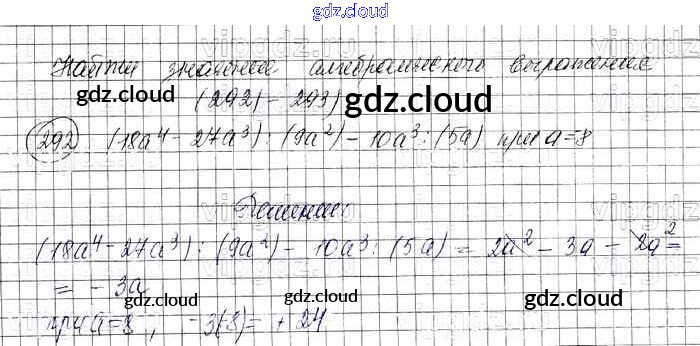 gdz.cloud
Найти значение алгебраического выражения
(292) - 293)
gdz.cloud gdz.cloud
292) (18a⁴ - 27a³) : (9a²) - 10a³ : (5a) при a=8
Решение
gdz.cloud
(18a⁴ - 27a³) : (9a²) - 10a³ : (5a) = 2a² - 3a - 2a² =
= - 3a
gdz.cloud gdz.cloud gdz.cloud
при a=8, -3(8) = +24